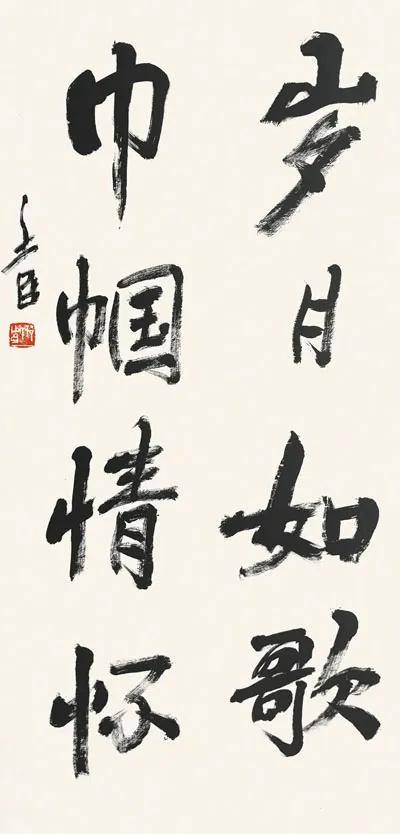 岁月如歌
巾帼情怀